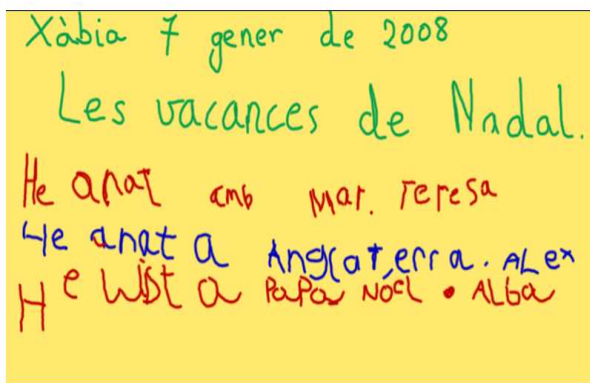 Xàbia 7 gener de 2008
Les vacances de Nadal.
He anat amb Mar. Teresa
He anat a Anglaterra. ALex
He wist a PaPa Noel • ALba